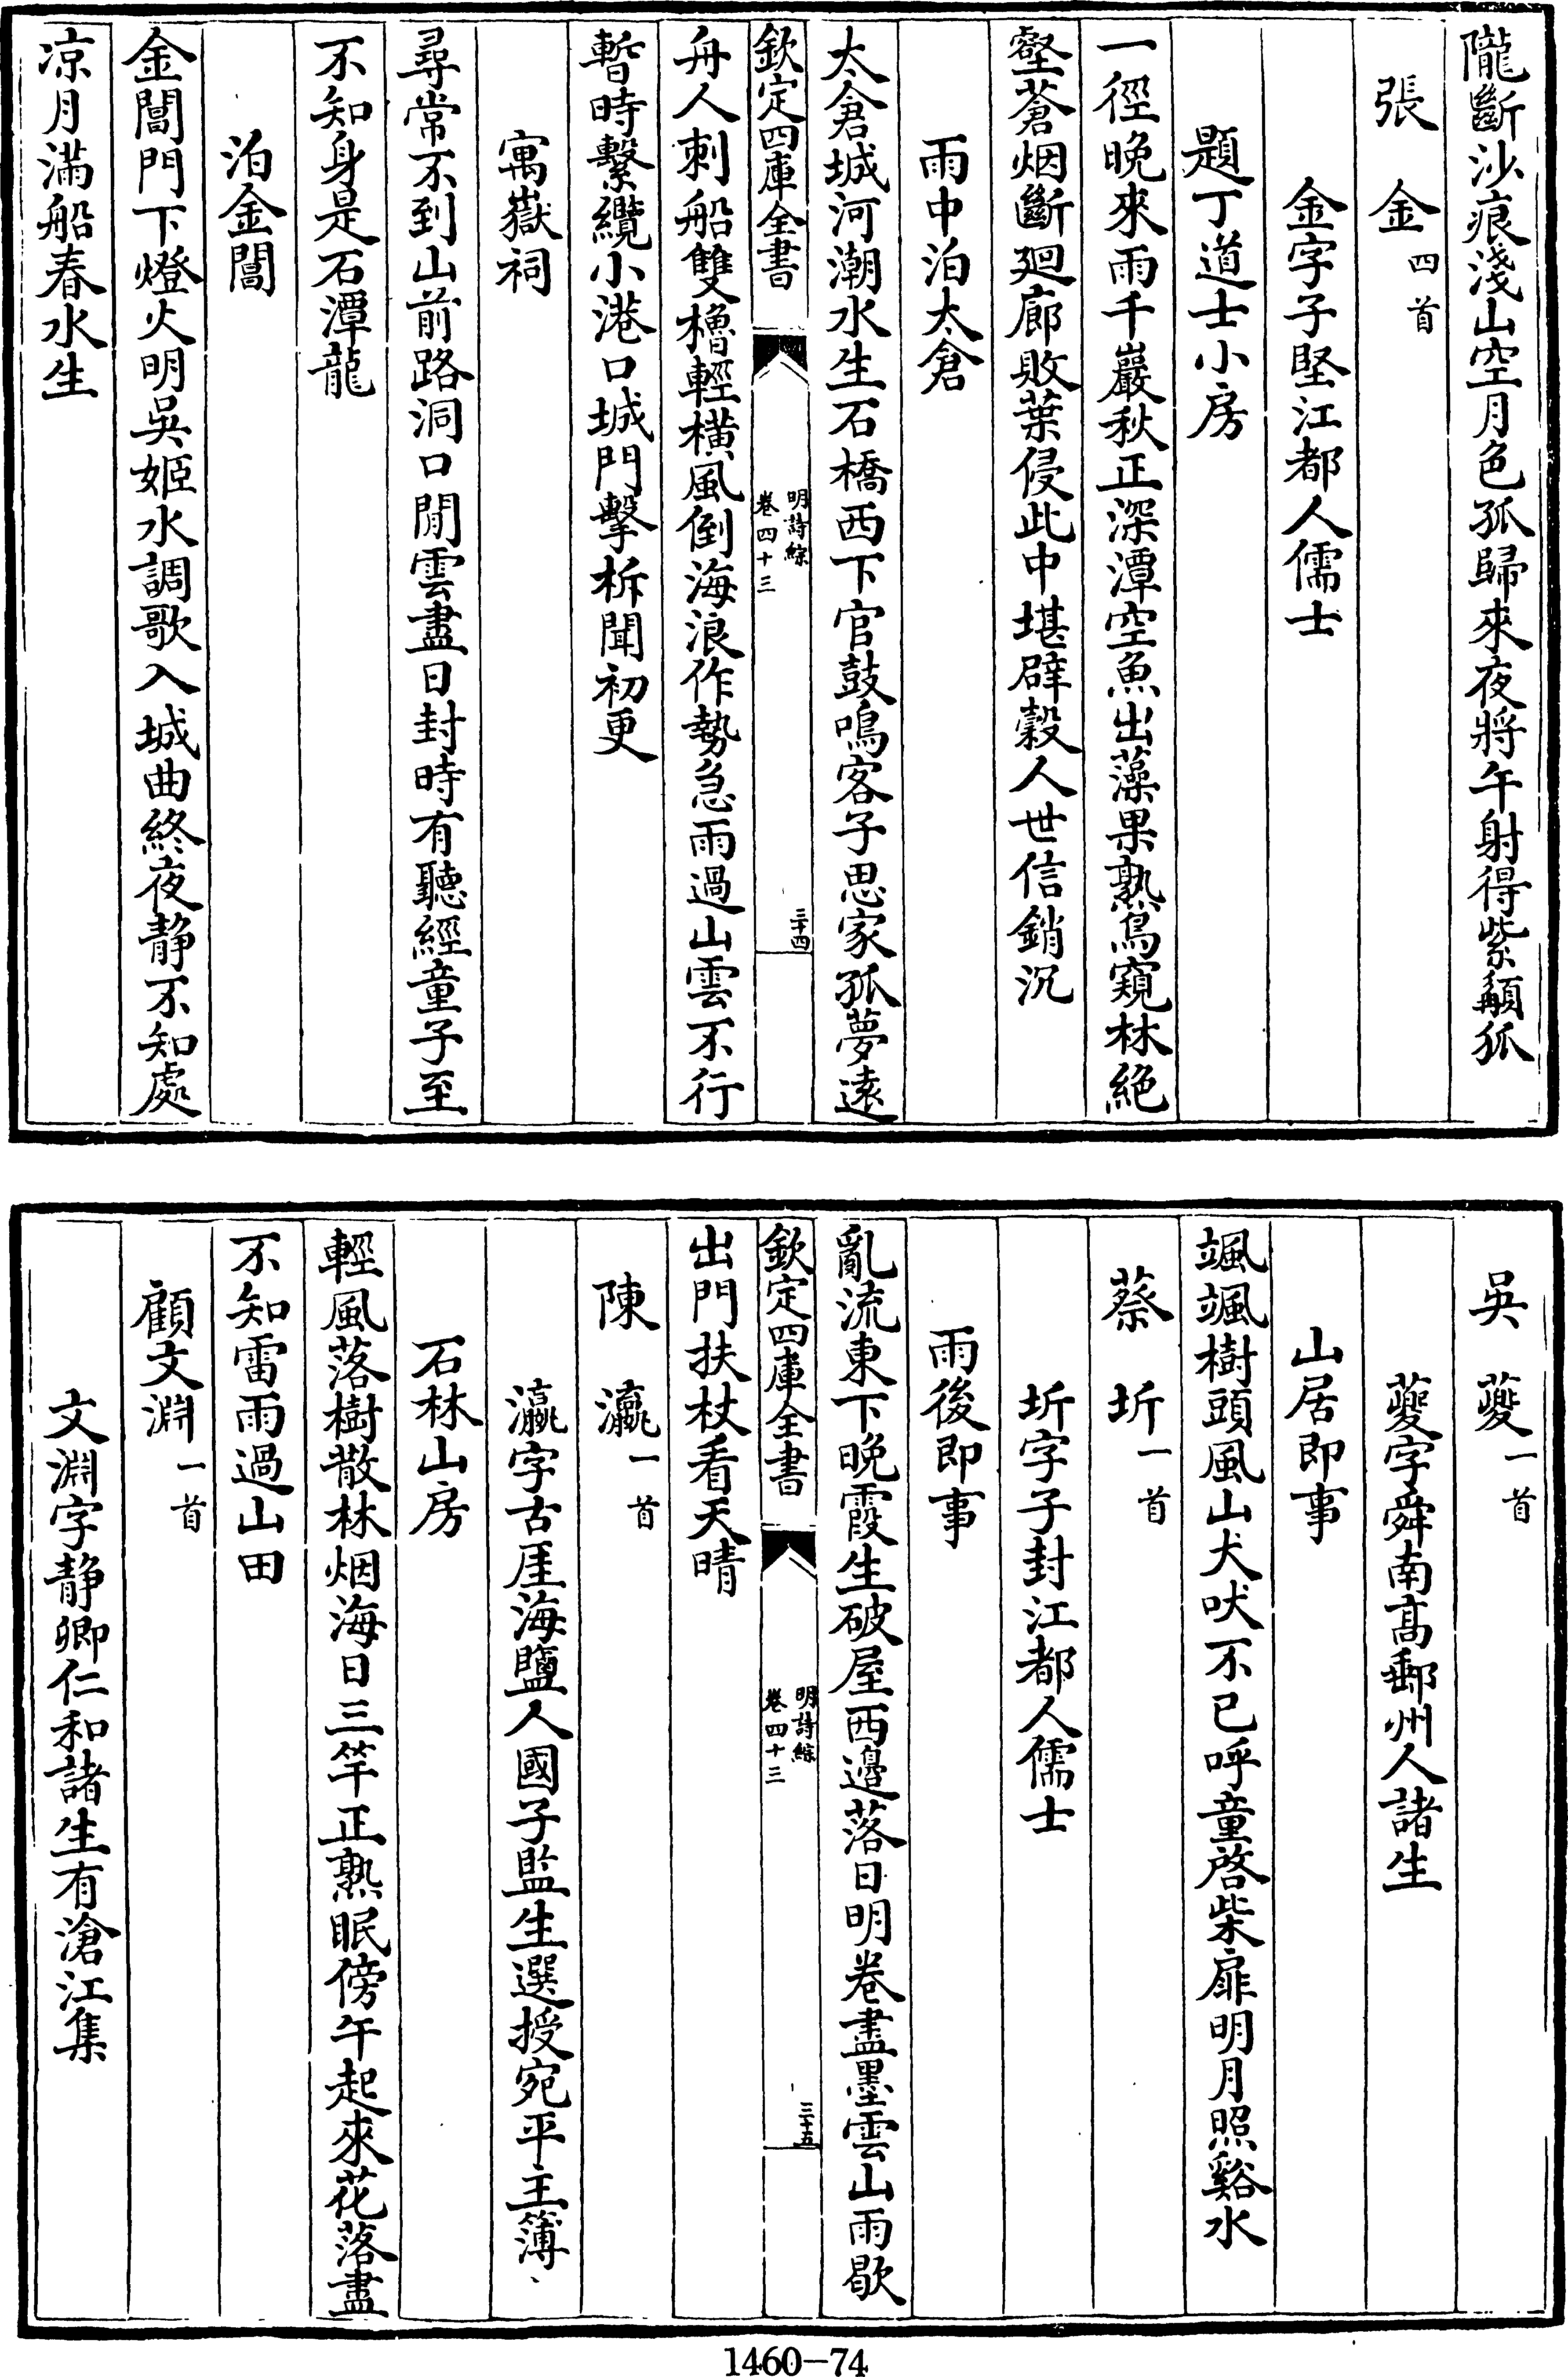 隴斷沙痕淺山空月色孤歸來夜將午射得紫顱狐
張金四首
金字子堅江都人儒士
題丁道士小房
一徑晚來雨千巖秋正深潭空魚出藻果熟鳥窺林絶
壑蒼烟斷廻廊敗葉侵此中堪辟穀人世信銷沉
雨中泊太倉
太倉城河潮水生石橋西下官鼓鳴客子思家孤夢遠
欽定四庫全書
明詩綜
卷四十三
三十四
舟人刺船雙櫓輕橫風倒海浪作勢急雨過山雲不行
暫時繫纜小港口城門擊柝聞初更
寓嶽祠
尋常不到山前路洞口閒雲盡日封時有聽經童子至
不知身是石潭龍
泊金閶
金閶門下燈火明吳姬水調歌入城曲終夜静不知處
凉月滿船春水生
吳䕫一首
䕫字舜南髙郵州人諸生
山居即事
颯颯樹頭風山犬吠不已呼童啓柴扉明月照谿水
蔡圻一首
圻字子封江都人儒士
雨後即事
亂流東下晚霞生破屋西邉落日明卷盡墨雲山雨歇
欽定四庫全書
明詩綜
卷四十三
三十五
出門扶杖看天晴
陳瀛一首
瀛字古厓海鹽人國子監生選授宛平主簿
石林山房
輕風落樹散林烟海日三竿正熟眠傍午起來花落盡
不知雷雨過山田
顧文淵一首
文淵字静卿仁和諸生有滄江集
1460-74